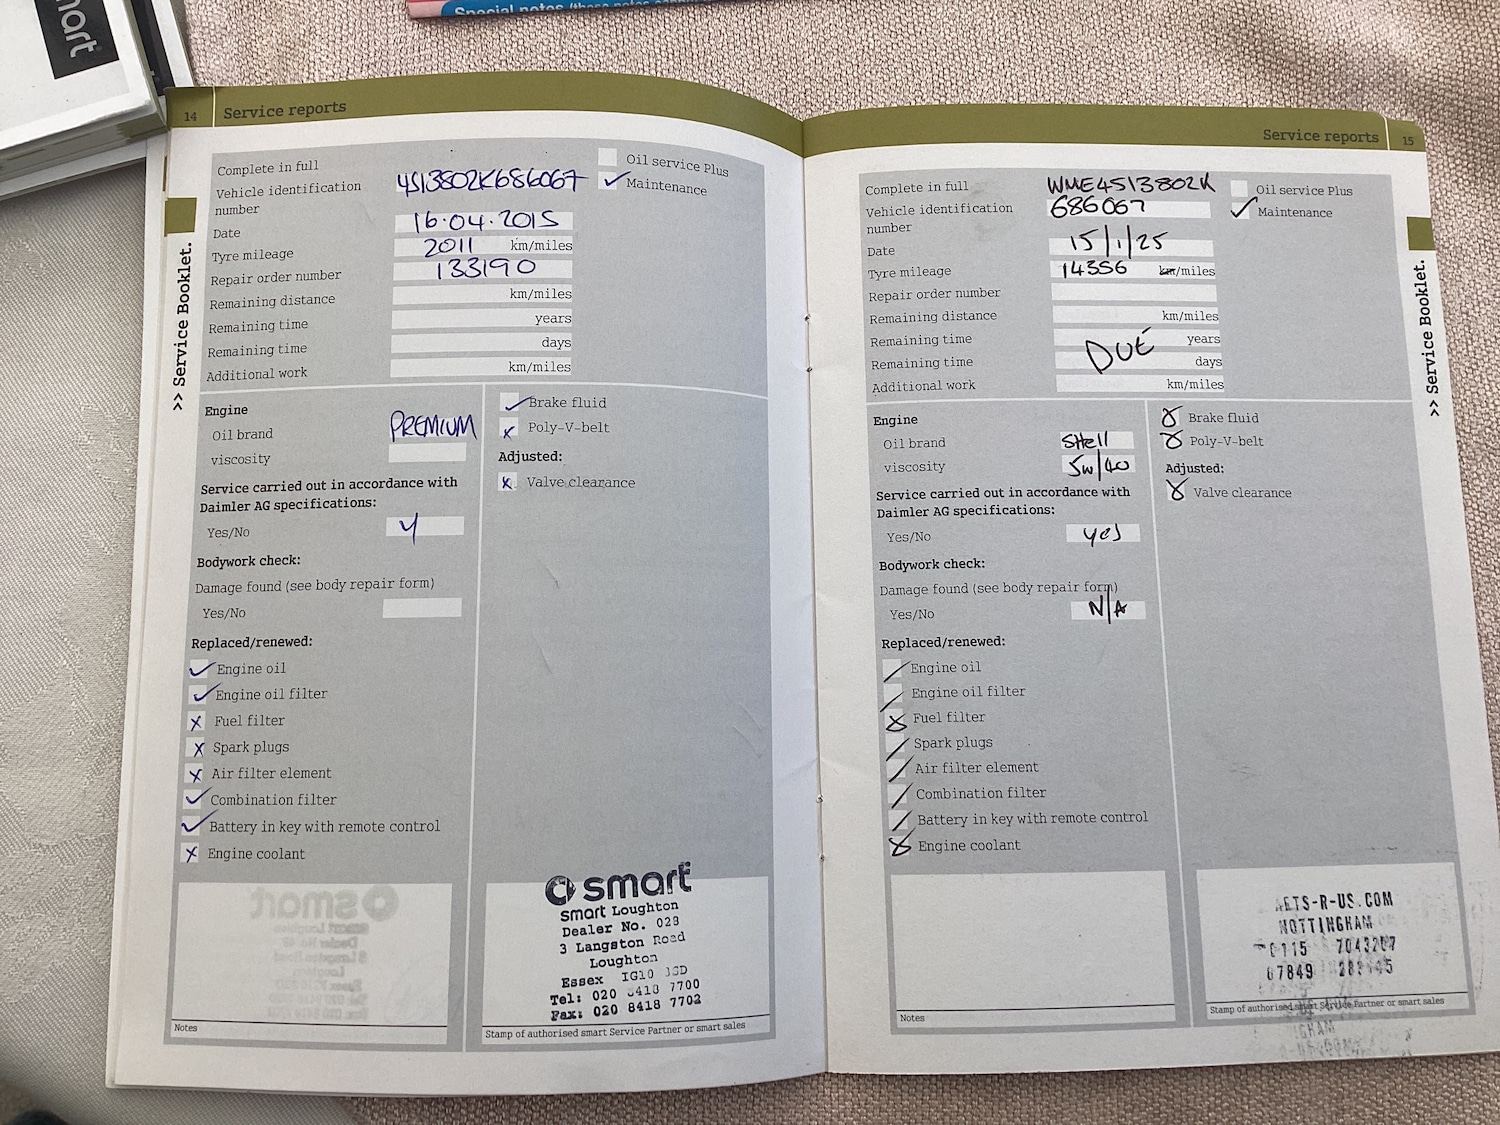 smart
Special notes
14 Service reports
Complete in full
Vehicle identification number
4513802K686067
Oil service Plus
Maintenance
Date 16.04.2015
Tyre mileage 2011 km/miles
Repair order number 133190
Remaining distance km/miles
Remaining time years
Remaining time days
Additional work km/miles
>> Service Booklet.
Engine
Oil brand PREMIUM
viscosity
Service carried out in accordance with
Daimler AG specifications:
Yes/No Y
Bodywork check:
Damage found (see body repair form)
Yes/No
Replaced/renewed:
Engine oil
Engine oil filter
Fuel filter
Spark plugs
Air filter element
Combination filter
Battery in key with remote control
Engine coolant
Brake fluid
Poly-V-belt
Adjusted:
Valve clearance
Notes
smart
smart Loughton
Dealer No. 028
3 Langston Road
Loughton
Essex IG10
Tel: 020 8418 7700
Fax: 020 8418 7702
Stamp of authorised smart Service Partner or smart sales
Service reports 15
Complete in full
Vehicle identification number
WME4513802K
686067
Oil service Plus
Maintenance
Date 15/1/25
Tyre mileage 14356 km/miles
Repair order number
Remaining distance km/miles
Remaining time years
DUE
Remaining time days
Additional work km/miles
>> Service Booklet.
Engine
Oil brand Shell
viscosity 5w/40
Service carried out in accordance with
Daimler AG specifications:
Yes/No yes
Bodywork check:
Damage found (see body repair form)
Yes/No N/A
Replaced/renewed:
Engine oil
Engine oil filter
Fuel filter
Spark plugs
Air filter element
Combination filter
Battery in key with remote control
Engine coolant
Brake fluid
Poly-V-belt
Adjusted:
Valve clearance
Notes
NOTTINGHAM
0115
07849
Stamp of authorised smart Service Partner or smart sales